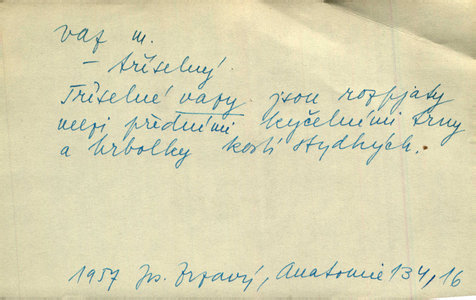 vaz m.
– tříselný.
Tříselné vazy jsou rozpjaty
mezi předními kyčelními trny
a hrbolky kostí stydkých.
1957 Jos. Zrzavý, Anatomie 134, 16